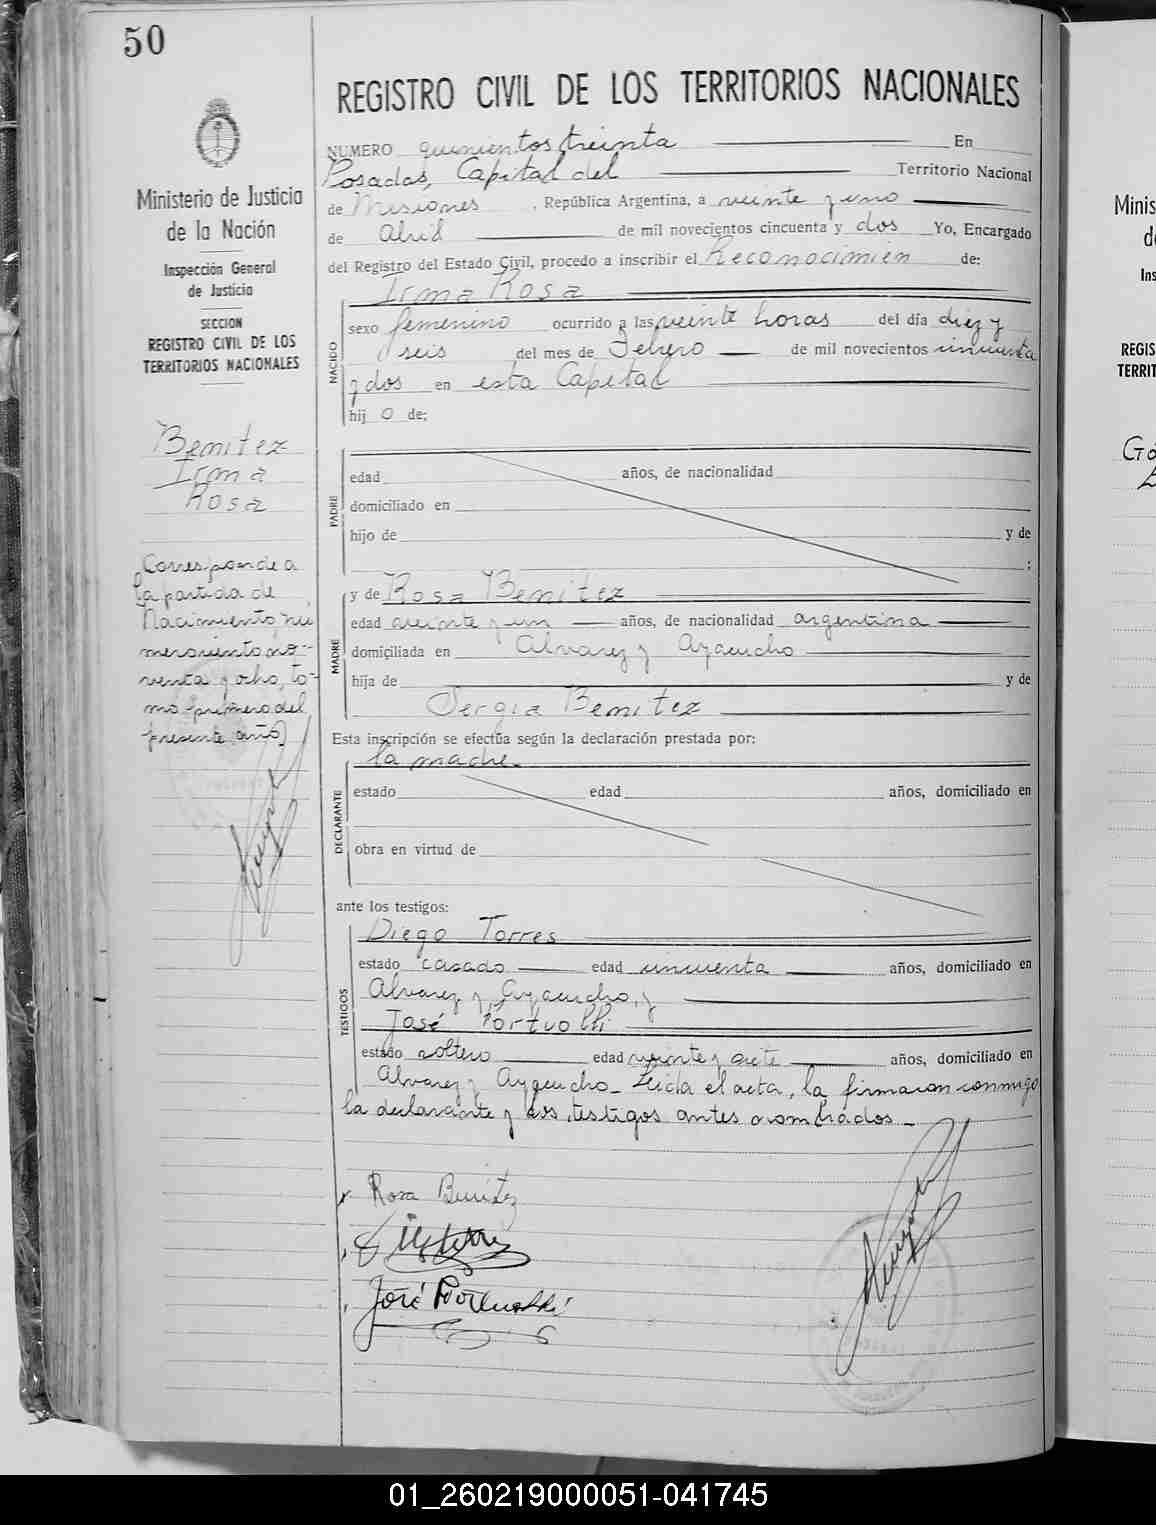 50
REGISTRO CIVIL DE LOS TERRITORIOS NACIONALES
Ministerio de Justicia
de la Nación
Inspección General
de Justicia
SECCION
REGISTRO CIVIL DE LOS
TERRITORIOS NACIONALES
Benitez
Irma
Rosa
Corresponde a
la partida de
Nacimiento nu
mero ciento no-
venta y ocho, to-
mo primero del
presente año
NUMERO quinientos treinta En
Posadas, Capital del Territorio Nacional
de Misiones, República Argentina, a veinte y uno
de Abril de mil novecientos cincuenta y dos Yo, Encargado
del Registro del Estado Civil, procedo a inscribir el Reconocimien de:
Irma Rosa
NACIDO
sexo femenino ocurrido a las veinte horas del día diez y
seis del mes de Febrero de mil novecientos cincuenta
y dos en esta Capital
hij o de:
PADRE
edad años, de nacionalidad
domiciliado en
hijo de y de
;
MADRE
y de Rosa Benitez
edad veinte y un años, de nacionalidad argentina
domiciliada en Alvarez y Ayacucho
hija de y de
Sergia Benitez
Esta inscripción se efectúa según la declaración prestada por:
DECLARANTE
la madre.
estado edad años, domiciliado en
obra en virtud de
ante los testigos:
TESTIGOS
Diego Torres
estado casado edad cincuenta años, domiciliado en
Alvarez y Ayacucho, y
José
estado soltero edad veinte y siete años, domiciliado en
Alvarez y Ayacucho- Leida el acta, la firmaron conmigo
la declarante y los testigos antes nombrados-
Rosa Benitez
José
Minis
REGIS
TERRIT
01_260219000051-041745